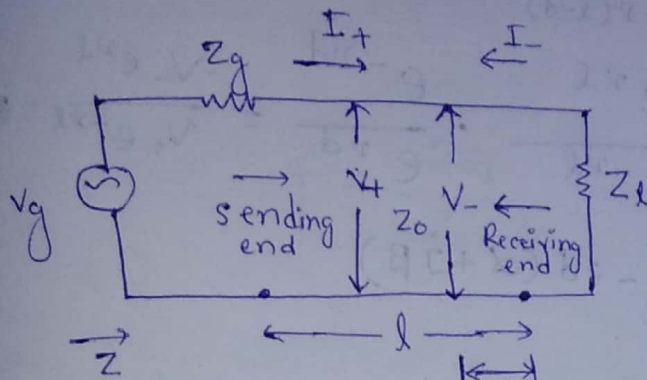 I+
I-
Zg
Vg
sending
end
V+
Zo
V-
Receiving
end
Zl
Z
l